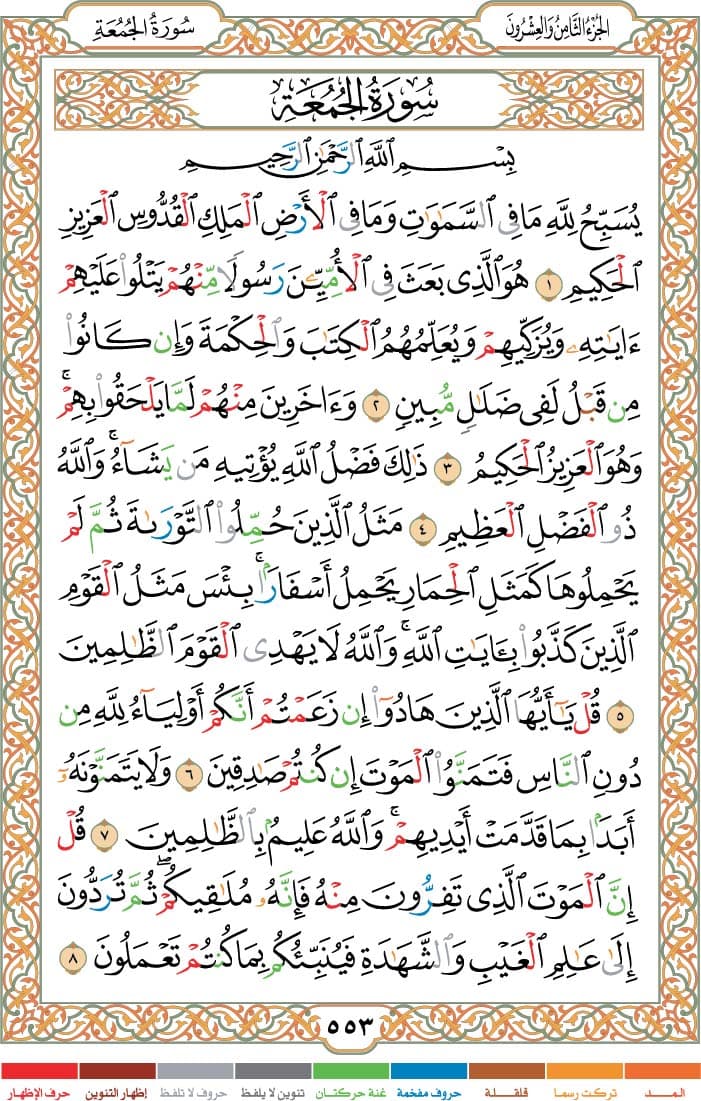 الجُزْءُ الثَّامِنُ وَالعِشْرُونَ
سُورَةُ الجُمُعَةِ
سُورَةُ الجُمُعَةِ
بِسْمِ ٱللَّهِ ٱلرَّحْمَٰنِ ٱلرَّحِيمِ
يُسَبِّحُ لِلَّهِ مَا فِى ٱلسَّمَٰوَٰتِ وَمَا فِى ٱلْأَرْضِ ٱلْمَلِكِ ٱلْقُدُّوسِ ٱلْعَزِيزِ
ٱلْحَكِيمِ ١ هُوَ ٱلَّذِى بَعَثَ فِى ٱلْأُمِّيِّـۧنَ رَسُولًا مِّنْهُمْ يَتْلُوا۟ عَلَيْهِمْ
ءَايَٰتِهِۦ وَيُزَكِّيهِمْ وَيُعَلِّمُهُمُ ٱلْكِتَٰبَ وَٱلْحِكْمَةَ وَإِن كَانُوا۟
مِن قَبْلُ لَفِى ضَلَٰلٍ مُّبِينٍ ٢ وَءَاخَرِينَ مِنْهُمْ لَمَّا يَلْحَقُوا۟ بِهِمْ ۚ
وَهُوَ ٱلْعَزِيزُ ٱلْحَكِيمُ ٣ ذَٰلِكَ فَضْلُ ٱللَّهِ يُؤْتِيهِ مَن يَشَآءُ ۚ وَٱللَّهُ
ذُو ٱلْفَضْلِ ٱلْعَظِيمِ ٤ مَثَلُ ٱلَّذِينَ حُمِّلُوا۟ ٱلتَّوْرَىٰةَ ثُمَّ لَمْ
يَحْمِلُوهَا كَمَثَلِ ٱلْحِمَارِ يَحْمِلُ أَسْفَارًۢا ۚ بِئْسَ مَثَلُ ٱلْقَوْمِ
ٱلَّذِينَ كَذَّبُوا۟ بِـَٔايَٰتِ ٱللَّهِ ۚ وَٱللَّهُ لَا يَهْدِى ٱلْقَوْمَ ٱلظَّٰلِمِينَ
٥ قُلْ يَٰٓأَيُّهَا ٱلَّذِينَ هَادُوٓا۟ إِن زَعَمْتُمْ أَنَّكُمْ أَوْلِيَآءُ لِلَّهِ مِن
دُونِ ٱلنَّاسِ فَتَمَنَّوُا۟ ٱلْمَوْتَ إِن كُنتُمْ صَٰدِقِينَ ٦ وَلَا يَتَمَنَّوْنَهُۥٓ
أَبَدًۢا بِمَا قَدَّمَتْ أَيْدِيهِمْ ۚ وَٱللَّهُ عَلِيمٌۢ بِٱلظَّٰلِمِينَ ٧ قُلْ
إِنَّ ٱلْمَوْتَ ٱلَّذِى تَفِرُّونَ مِنْهُ فَإِنَّهُۥ مُلَٰقِيكُمْ ۖ ثُمَّ تُرَدُّونَ
إِلَىٰ عَٰلِمِ ٱلْغَيْبِ وَٱلشَّهَٰدَةِ فَيُنَبِّئُكُم بِمَا كُنتُمْ تَعْمَلُونَ ٨
٥٥٣
المــد تركت رسما قلقـلة حروف مفخمة غنة حركتان تنوين لا يلفظ حروف لا تلفظ إظهار التنوين حرف الإظهار